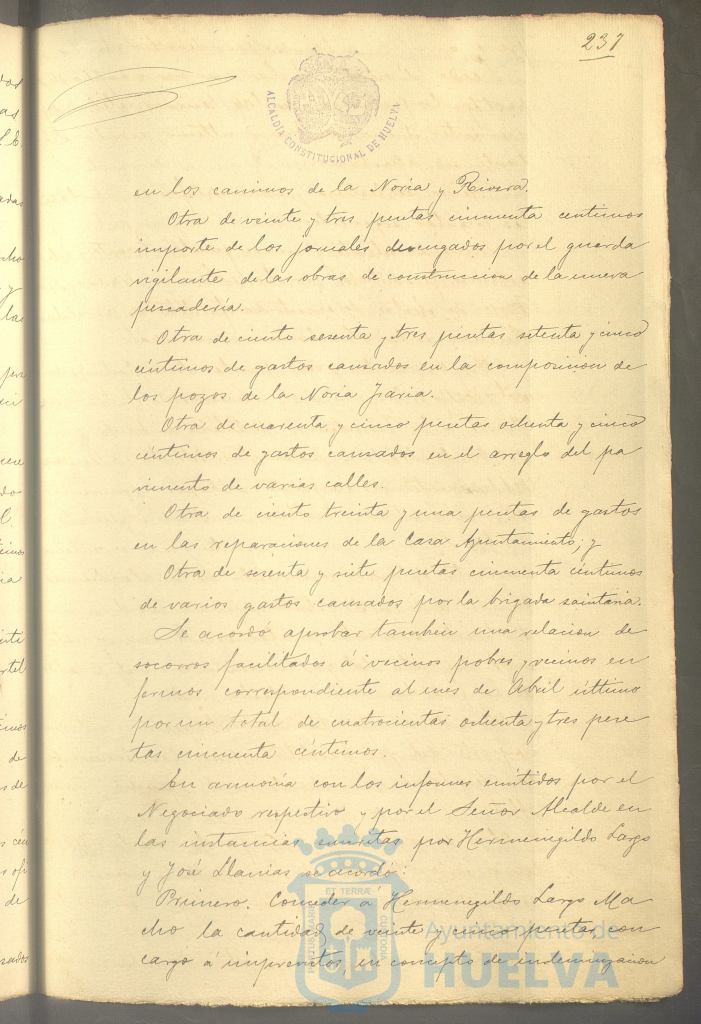 237
ALCALDÍA CONSTITUCIONAL DE HUELVA
en los caminos de la Noria y Rivera.
Otra de veinte y tres pesetas cincuenta centimos
importe de los jornales devengados por el guarda
vigilante de las obras de construccion de la nueva
pescadería.
Otra de ciento sesenta y tres pesetas setenta y cinco
céntimos de gastos causados en la composicion de
los pozos de la Noria
Otra de cuarenta y cinco pesetas ochenta y cinco
céntimos de gastos causados en el arreglo del pa
vimento de varias calles.
Otra de ciento treinta y una pesetas de gastos
en las reparaciones de la Casa Ayuntamiento; y
Otra de sesenta y siete pesetas cincuenta céntimos
de varios gastos causados por la brigada sanitaria.
Se acordó aprobar tambien una relacion de
socorros facilitados á vecinos pobres y vecinos en
fermos correspondiente al mes de Abril último
por un total de cuatrocientas ochenta y tres pese
tas cincuenta céntimos.
En armonía con los informes emitidos por el
Negociado respectivo y por el Señor Alcalde en
las instancias suscritas por Hermenegildo Largo
y José Llanias se acordó:
Primero. Conceder á Hermenegildo Largo Ma
cho la cantidad de veinte y cinco pesetas, con
cargo á imprevistos, en concepto de indemnizacion
Ayuntamiento de
HUELVA